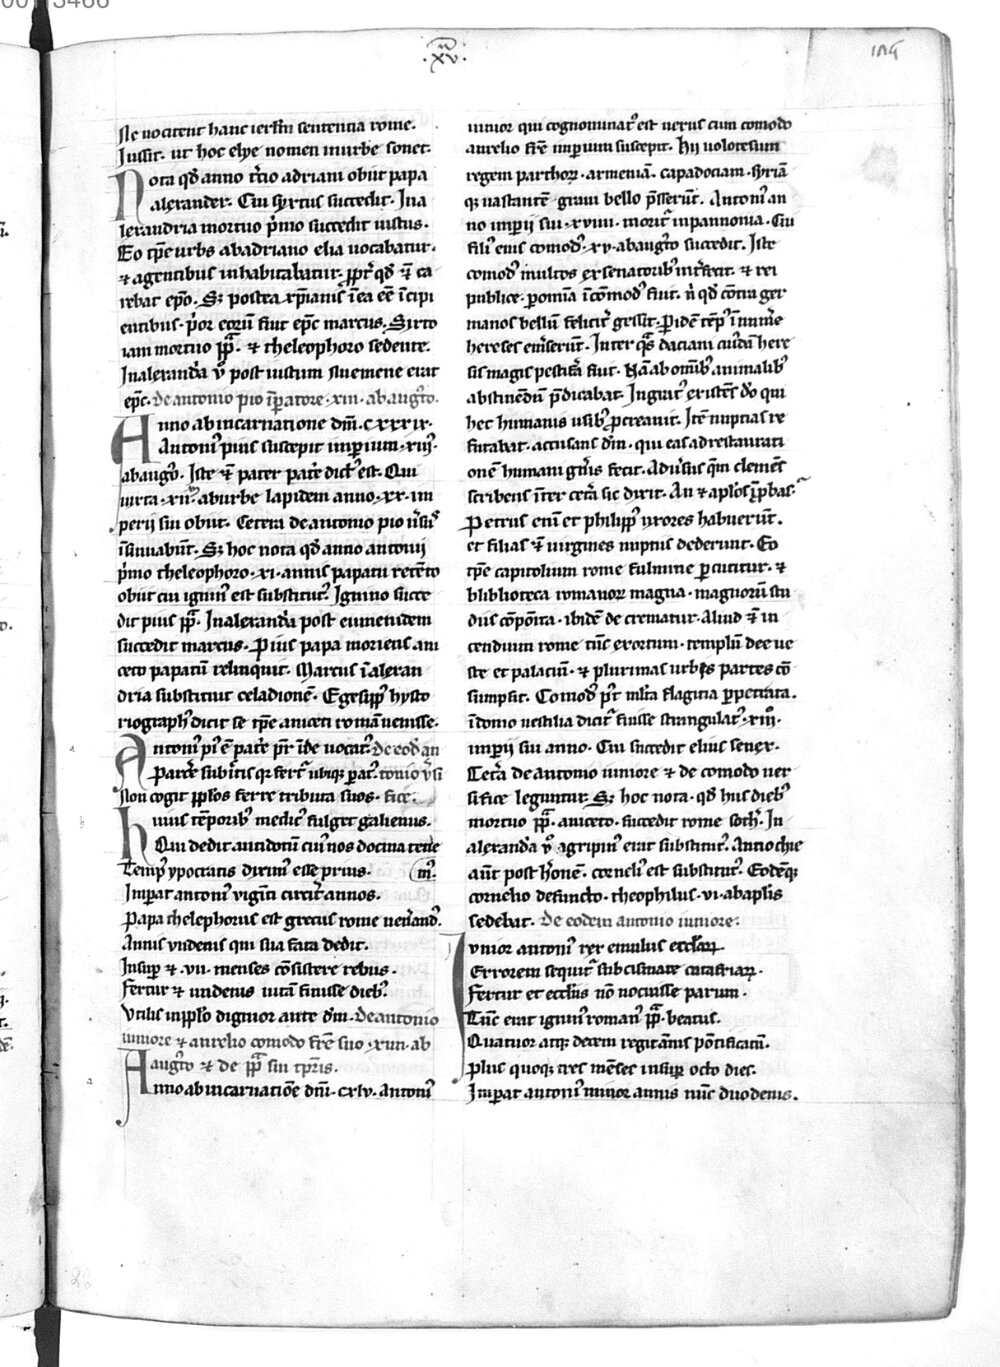 ·XV·
Ne uocitent hanc ierl'm sententia rome.
Iussit. ut hoc elye nomen in urbe sonet.
Nota qd' anno t'cio adriani obiit papa
alexander. Cui syxtus succedit. In a
lexandria mortuo p'mo succedit iustus.
Eo tp̄e urbs ab adriano elia uocabatur.
& a gentibus inhabitabatur. ppt' qd' & ca
rebat ep̄o. S; postea xp̄ianis ī ea eē īcipi
entibus. p'or eorū fuit ep̄c marcus. Sixto
iam mortuo pp̄. & theleophoro sedente.
In alexand'a u° post iustum siue mene erat
ep̄c. de antonio pio īp̄atore .xiii. ab aug'to.
Anno ab incarnatione dn̄i .c.xxxix.
Antoni' pius suscepit imp̄ium .xiii'.
ab aug'to. Iste & pater patr'e dict' est. Qui
iuxta .xii. ab urbe lapidem anno .xx. im
perii sui obiit. Cetera de antonio pio u'si'
īsinuabūt. S; hoc nota qd' anno antonii
p'mo theleophoro .xi. annis papatu retēto
obiit cui iginiu' est substitut'. Ignino succe
dit pius pp̄. In alexand'a post eumenidem
succedit marcus. Pius papa moriens ani
ceto papatū relinquit. Marcus ī alexan
dria substituit celadionē. Egesipp' hysto
riograph' dicit se tp̄e aniceti romā uenisse.
Antoni' pi' ē pat'e pr̄ īde uocat'. de eod' an
Parc'e subi'tis qr fert' ubiq; pat'. tonio u'si
Non cogit pp'los ferre tributa suos. fice.
Huius tēporib' medic' fulget galienus.
Qui dedit antidotū cui' nos docᵗina tene
Temp' ypocratis diximus esse prius. (m'.
Imp̄at antoni' viginti circit' annos.
Papa thelephorus est grecus rome uen'and'.
Annis undenis qui sua fata dedit.
Insup̄ & .vii. menses cōsistere rebus.
Fertur & undenis uitā finisse dieb'.
Vtilis in pp'lo dignior ante dm̄. de antonio
iuniore & aurelio comodo fr̄e suo .xiiii. ab
aug'to & de pp̄ sui tp̄ris.
Anno ab incarnatiōe dn̄i .cxlv. antoni'
iunior qui cognominat' est uerus cum comodo
aurelio fr̄e imperium suscepit. Hii uolotesum
regem parthoꝝ. armeniā. capadociam. syriā
q; uastantē graui bello p̄sserūt. Antoni' an
no imp̄ii sui .xviii. morit' in pannonia. Cui
fili' eius comod' .xv. ab aug'to succedit. Iste
comod' multos ex senatorib' int'fecit. & rei
publice. p omīa īcōmod' fuit. n' qd' cōtra ger
manos bellū felicit' gessit. P idē tēp' īnum'e
hereses em'serūt. Inter q̄s daciani cui'dā here
sis magis pestifa fuit. Nā ab omib' animalib'
abstinēdū p̄dicabat. Ingrat' existēs d'o qui
hec humanis usib' pcreauit. Itē nuptias re
futabat. accusans dn̄m. qui eas ad restaurati
onē humani gn̄is fecit. Adu'sus q̄m clemēs
scribens īter cet'a sic dixit. An & ap'los īp̄bas.'
Petrus eni et philipp' uxores habuerūt.
et filias & uirgines nuptiis dederunt. Eo
tp̄e capitolium rome fulmine p̄cutitur. &
blibliotheca romanoꝝ magna. magnorū stu
diis cōposita. ibidē de crematur. Aliud & in
cendium rome tūs exortum. templū dee ue
ste et palaciū. & plurimas urbis partes cō
sumpsit. Comod' p't mlta flagitia p̄petrata.
ī domo uestilia dicit' fuisse strangulat' .xiii'.
imp̄ii sui anno. Cui succedit elius senex.
Cet'a de antonio iuniore & de comodo uer
sifice leguntur. S; hoc nota. qd' hiis dieb'
mortuo pp̄. aniceto. succedit rome soth'. In
alexand'a u° agripin' erat substitut'. Antochie
aūt post h'onē. corneli' est substitut'. Eodēq;
cornelio defuncto. theophilus .vi. ab ap'lis
sedebat. de eodem antonio iuniore.
Iunior antoni' rex emulus eccl'iaꝝ.
Errorem sequit' sub cismate catafrigaꝝ.
Fertur et eccl'iis nō nocuisse parum.
Tūc erat iginiu' roman' pp̄. beatus.
Quatuor atq; decem regit annis pōtificatū.
Plus quoq; tres mēses insup̄ octo dies.
Imp̄at antoni' iunior annis nūc duodenis.